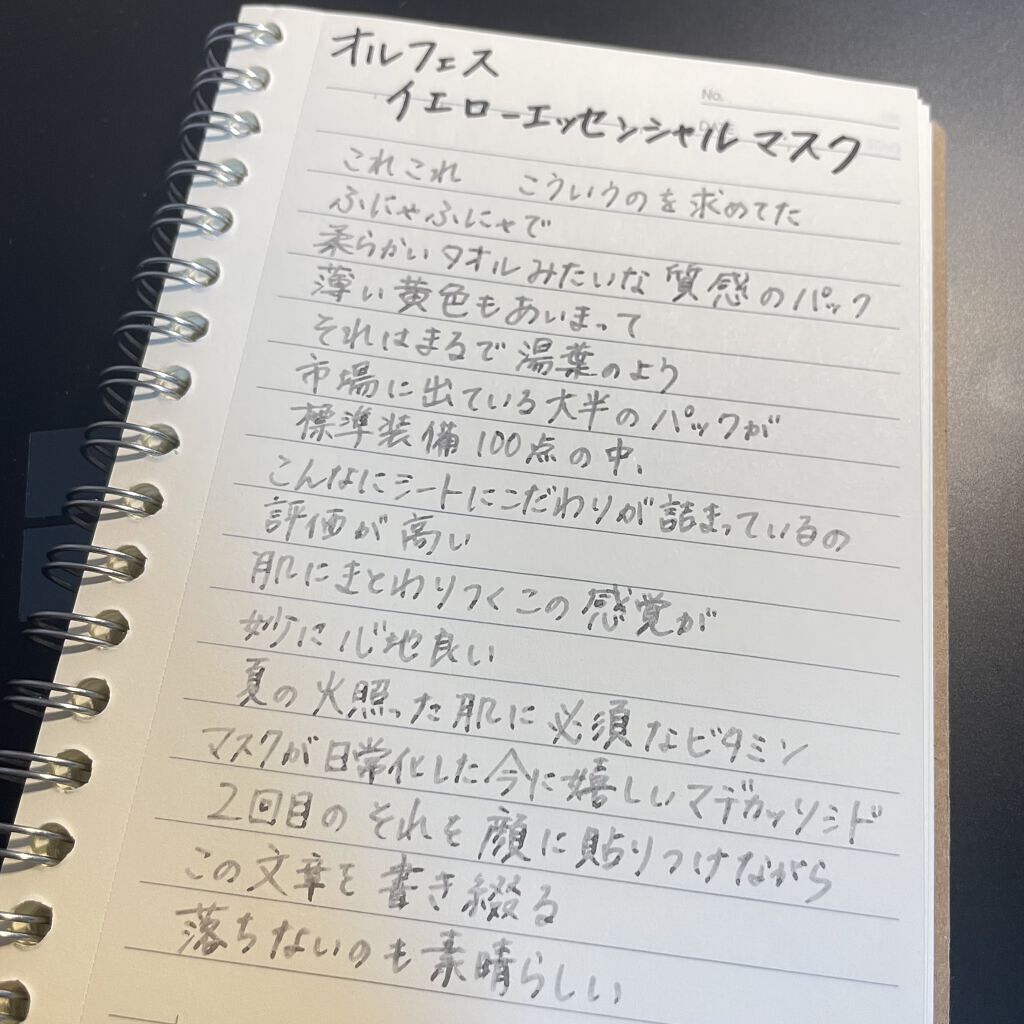 オルフェス
イエローエッセンシャルマスク
No.
これこれ こういうのを求めてた
ふにゃふにゃで
柔らかいタオルみたいな質感のパック
薄い黄色もあいまって
それはまるで湯葉のよう
市場に出ている大半のパックが
標準装備100点の中、
こんなにシートにこだわりが詰まっているの
評価が高い
肌にまとわりつくこの感覚が
妙に心地良い
夏の火照った肌に必須なビタミン
マスクが日常化した今に嬉しいマデカッソシド
2回目のそれを顔に貼りつけながら
この文章を書き綴る
落ちないのも素晴らしい